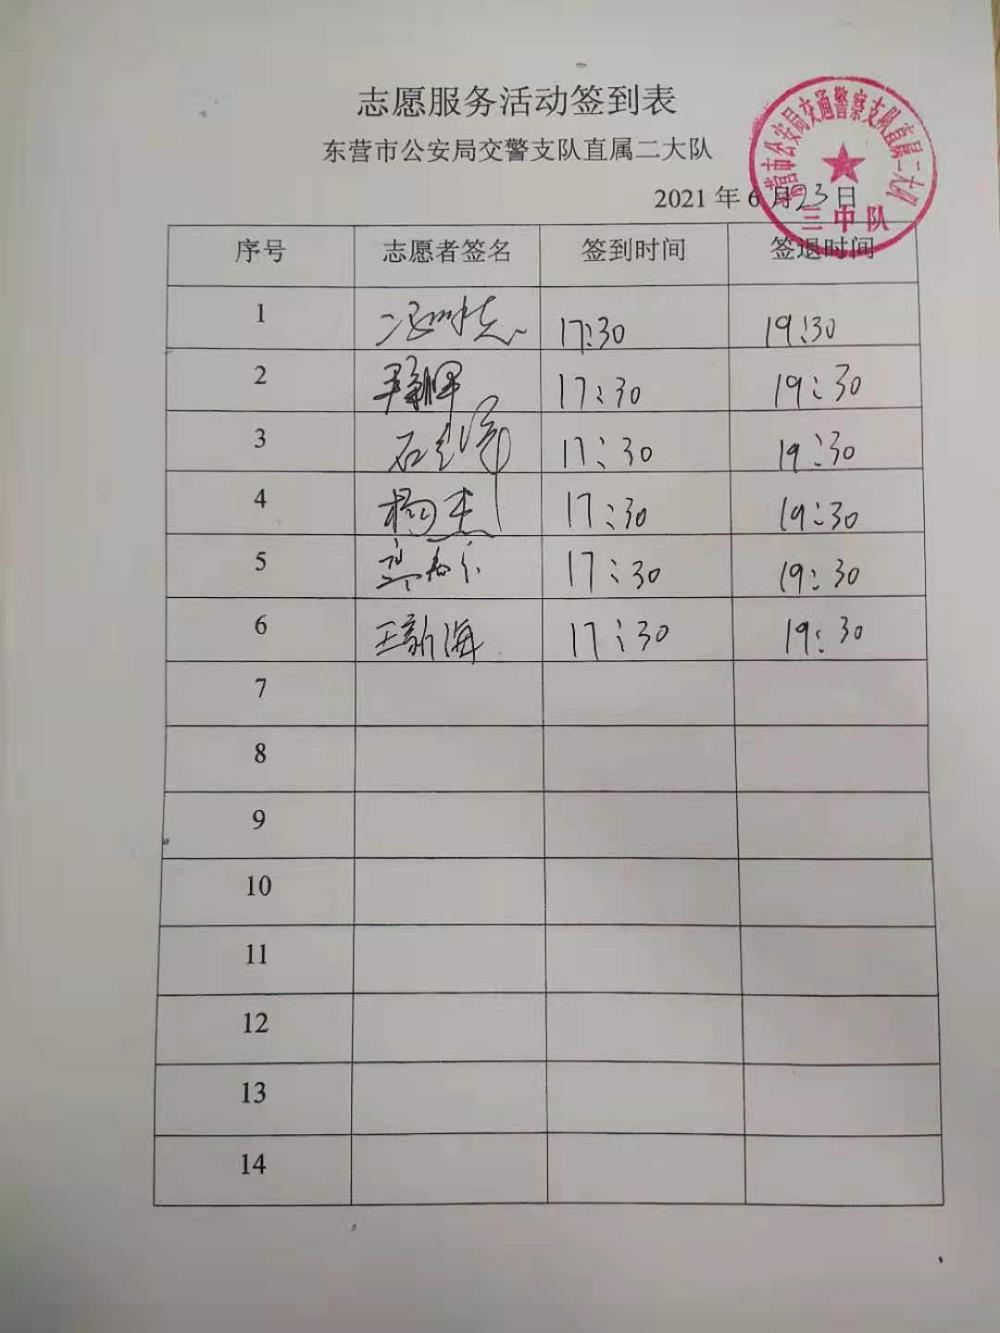 志愿服务活动签到表
东营市公安局交警支队直属二大队
东营市公安局交通警察支队直属二大队
三中队
2021 年 6 月 23 日
序号 志愿者签名 签到时间 签退时间
1 17:30 19:30
2 17:30 19:30
3 17:30 19:30
4 杨杰 17:30 19:30
5 17:30 19:30
6 王新海 17:30 19:30
7
8
9
10
11
12
13
14